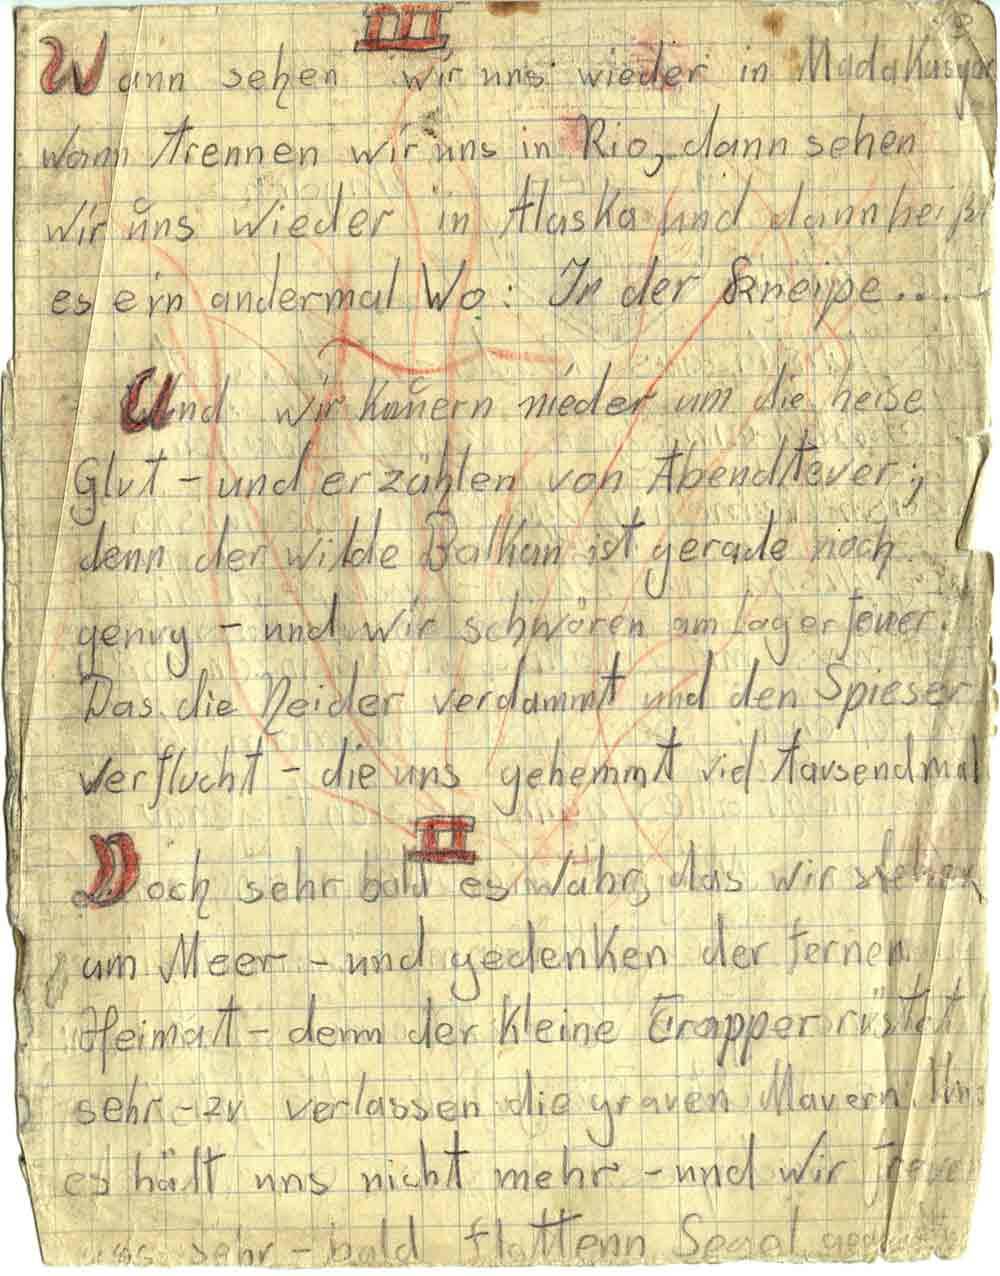 III
Wann sehen wir uns wieder in Madakasgar
wann trennen wir uns in Rio, dann sehen
wir uns wieder in Alaska und dann heißt
es ein andermal Wo: In der Kneipe....
Und wir kauern nieder um die heise
Glut - und erzählen von Abendteuer;
denn der wilde Balkan ist gerade noch
genug - und wir schwören am Lagerfeuer.
Das die Neider verdammt und den Spieser
verflucht - die uns gehemmt viel tausendmal
II
Doch sehr bald es Wahr, das wir stehen
am Meer - und gedenken der fernen
Heimat - denn der kleine Trapper rüstet
sehr - zu verlassen die grauen Mauern.
es hält uns nicht mehr - und wir
uns sehr - bald flattenn Segel